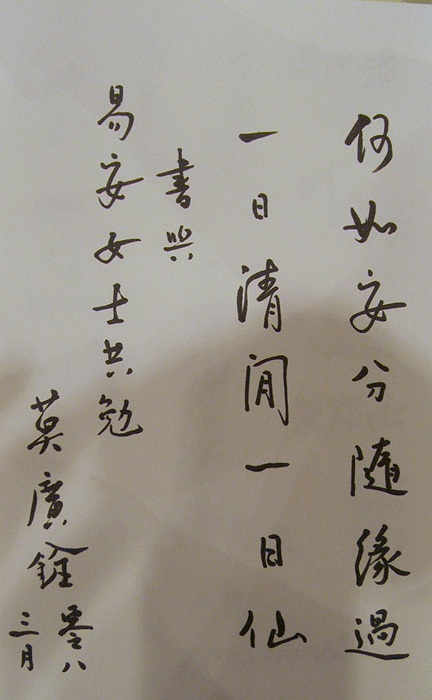 何如安分隨緣過
一日清閒一日仙
書與
易安女士共勉
莫廣銓
零八
三月